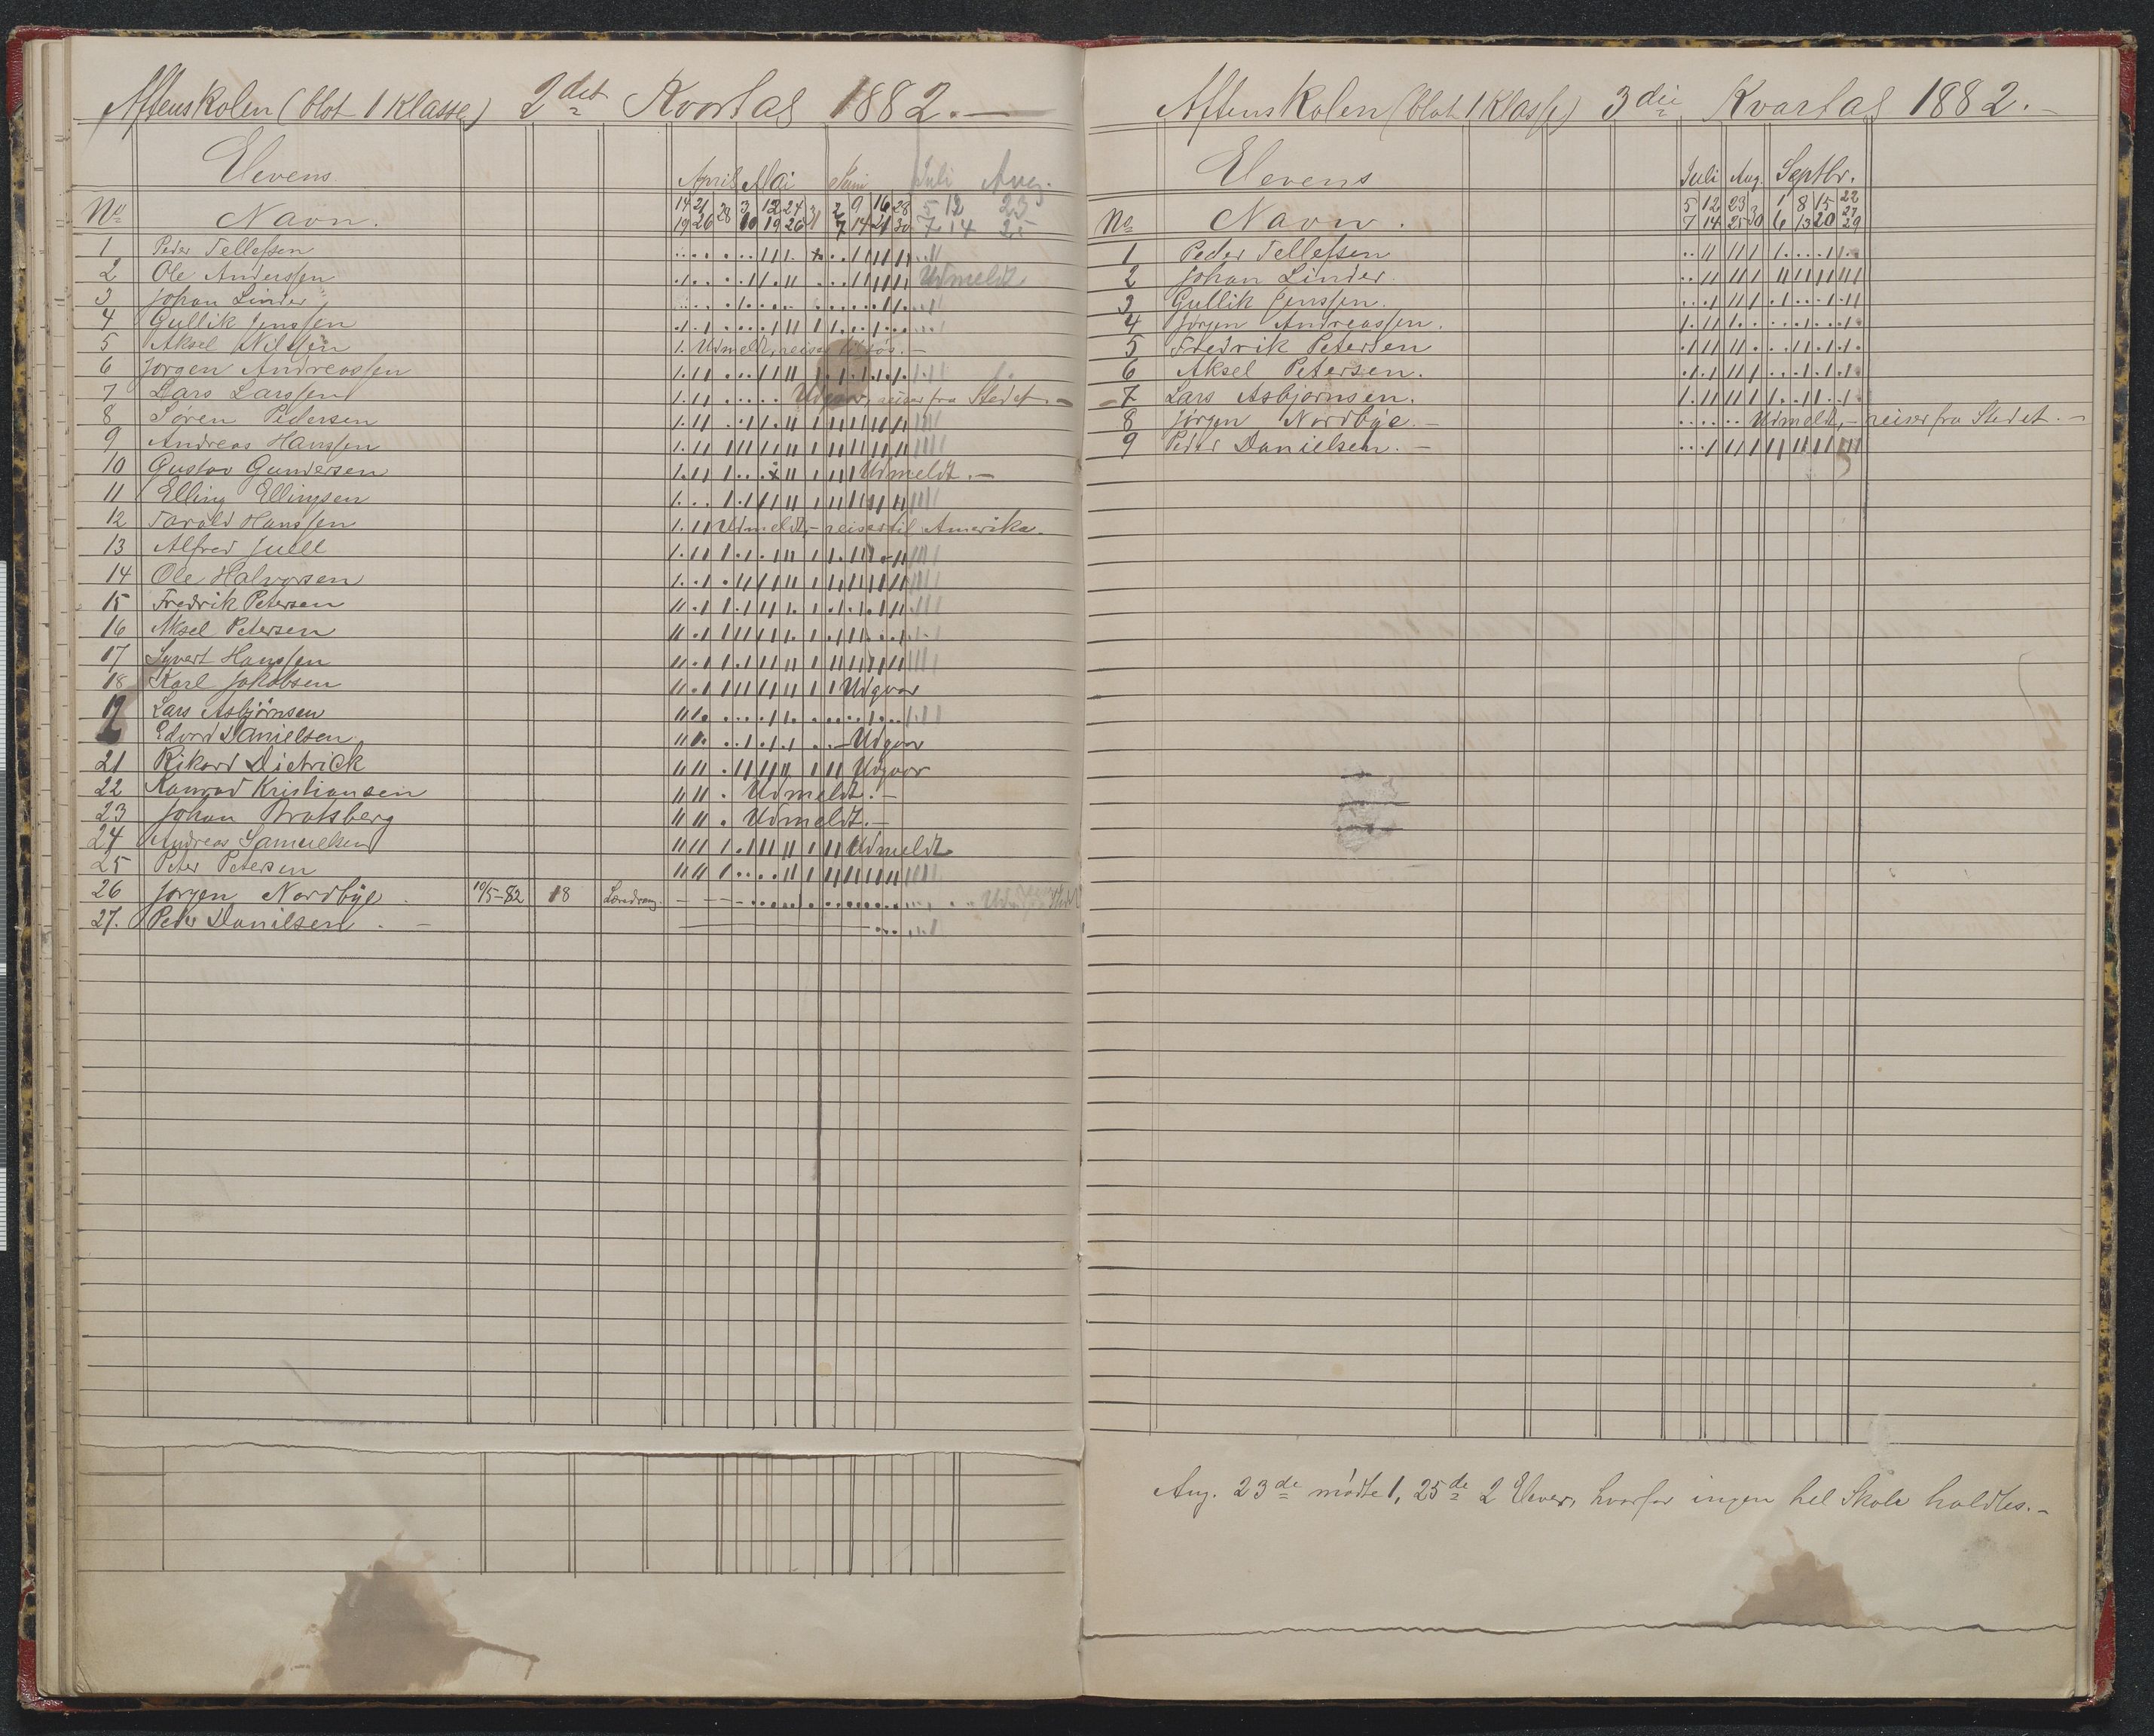 Aftenskolen (blot 1 Klasse) 2det Kvartal 1882.-
Elevens
April Mai Juni Juli Aug.
No Navn.
14 21 28 3 12 24 31 2 9 16 28 5 12 23
19 26 10 19 26 7 14 21 30 7 14 25
1 Peder Tellefsen
2 Ole Anderssen Udmeldt
3 Johan Linder
4 Gullik Jenssen
5 Aksel Nilssen Udmeldt, reiser til sös.-
6 Jørgen Andreassen
7 Lars Larssen Udgaar, reiser fra Stedet.-
8 Søren Pedersen
9 Andreas Hanssen
10 Gustav Gundersen Udmeldt.-
11 Elling Ellingsen
12 Tarald Hanssen Udmeldt,- reiser til Amerika.
13 Alfred Juell
14 Ole Halvorsen
15 Fredrik Petersen
16 Aksel Petersen
17 Syvert Hanssen
18 Karl Jakobsen Udgaar
19 Lars Asbjørnsen
Edvard Danielsen Udgaar
21 Rikard Dietrick Udgaar
22 Konrad Kristiansen Udmeldt.-
23 Johan Bratsberg Udmeldt.-
24 Andreas Samuelsen Udmeldt
25 Peter Petersen
26 Jørgen Nordbye. 10/5-82 18
27. Peder Danielsen.-
Aftenskolen (blot 1 Klasse) 3die Kvartal 1882.-
Elevens
Juli Aug. Septbr.
No Navn.
5 12 23 30 1 8 15 22 27
7 14 25 6 13 20 29
1 Peder Tellefsen
2 Johan Linder.
3 Gullik Jenssen.
4 Jørgen Andreassen.
5 Fredrik Petersen
6 Aksel Petersen.
7 Lars Asbjørnsen.
8 Jørgen Nordbye.- Udmeldt,- reiser fra Stedet.-
9 Peder Danielsen.-
Aug. 23de mødte 1, 25de 2 Elever, hvorfor ingen hel Skole holdtes.-